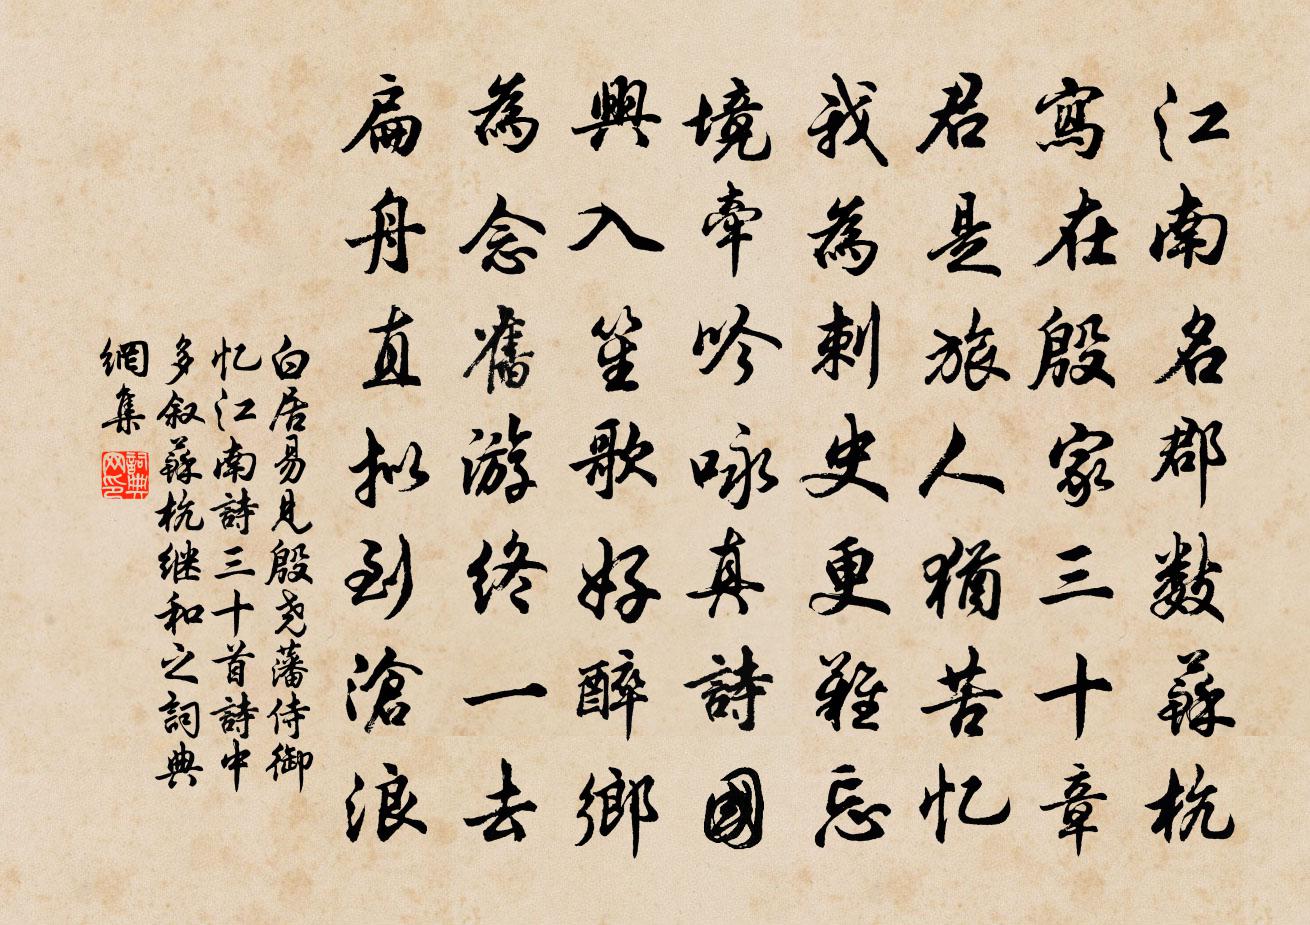 江南名郡數蘇杭
寫在殷家三十章
君是旅人猶苦忆
我為刺史更難忘
境牽吟咏真詩國
興入笙歌好醉鄉
為念舊游終一去
扁舟直拟到滄浪
白居易見殷尧藩侍御
忆江南詩三十首詩中
多叙蘇杭继和之詞典
網集
詞典网印